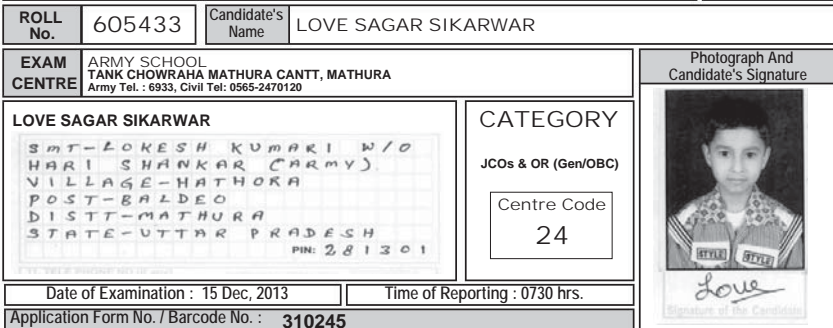 ROLL No. 605433 Candidate's Name LOVE SAGAR SIKARWAR
EXAM CENTRE
ARMY SCHOOL
TANK CHOWRAHA MATHURA CANTT, MATHURA
Army Tel. : 6933, Civil Tel: 0565-2470120
Photograph And
Candidate's Signature
LOVE SAGAR SIKARWAR
SMT-LOKESH KUMARI W/O
HARI SHANKAR (ARMY).
VILLAGE-HATHORA
POST-BALDEO
DISTT-MATHURA
STATE-UTTAR PRADESH
PIN: 281301
CATEGORY
JCOs & OR (Gen/OBC)
Centre Code
24
STYLE STYLE
Love
Signature of the Candidate
Date of Examination : 15 Dec, 2013 Time of Reporting : 0730 hrs.
Application Form No. / Barcode No. : 310245